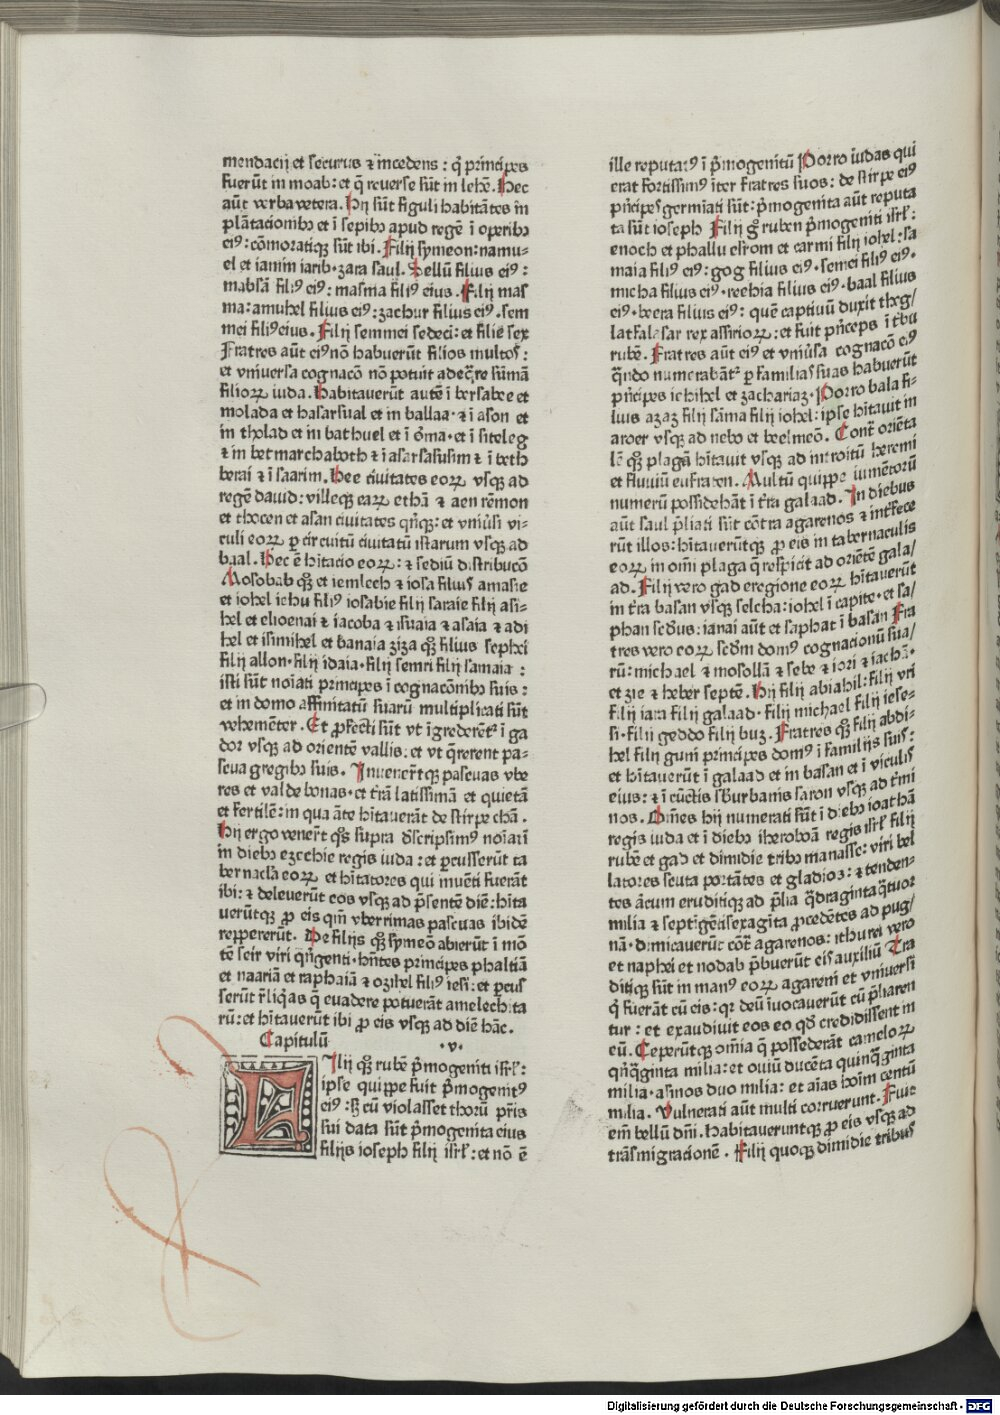 mendacij et securus ⁊ incedens : q̄ principes
fuerūt in moab: et q̄ reverse sūt in lehē. Hec
aūt verba vetera. Hij sūt figuli habitātes in
plātacionibꝫ et ī sepibꝫ apud regē ī operibꝫ
eiꝰ: cōmoratiqꝫ sūt ibi. Filij symeon: namu-
el et iamin iarib· zara saul. Sellū filius eiꝰ:
mabsā filiꝰ eiꝰ: masma filiꝰ eius. Filij mas
ma: amuhel filius eiꝰ: zachur filius eiꝰ· sem
mei filiꝰ eius. Filij semmei sedeci: et filie sex
Fratres aūt eiꝰ nō habuerūt filios multos:
et vniversa cognacō nō potuit adeq̄re sūmā
filioꝝ iuda. Habitaverūt autē ī bersabee et
molada et hasarsual et in ballaa· ⁊ ī ason et
in tholad et in bathuel et ī orma· et ī siteleg
⁊ in betmarchaboth ⁊ ī asarsasusim ⁊ ī beth
berai ⁊ ī saarim. Hee civitates eoꝝ vsqꝫ ad
regē david: ville qꝫ eaꝝ ethā ⁊ aen rēmon
et thocen et asan civitates qn̄qꝫ: et vniūsi vi-
culi eoꝝ ꝑ circuitū civitatū istarum vsqꝫ ad
baal. Hec ē hitacio eoꝝ: ⁊ sediū distribucō
Mosobab qꝫ et iemlech ⁊ iosa filius amasie
et iohel iehu filiꝰ iosabie filij saraie filij asi-
hel et elioenai ⁊ iacoba ⁊ isuaia ⁊ asaia ⁊ adi
hel et isimihel et banaia ziza qꝫ filius sephei
filij allon· filij idaia· filij semri filij samaia :
isti sūt noiati principes ī cognacōnibꝫ suis :
et in domo affinitatū suarū multiplicati sūt
vehemēter. Et ꝓfecti sūt vt īgrederētꝰ ī ga
dor vsqꝫ ad orientē vallis: et vt q̄rerent pa-
scua gregibꝫ suis. Inveneꝛ̄tqꝫ pascuas vbe
res et valde bonas· et tr̄ā latissimā et quietā
et fertilē: in qua āte hitaverāt de stirpe chā.
Hij ergo veneꝛ̄t q̄s supra d̄scripsimꝰ noīatī
in diebꝫ ezechie regis iuda: et ꝑcusserūt ta
bernacl̄a eoꝝ et hītatores qui invēti fuerāt
ibi: ⁊ deleverūt eos vsqꝫ ad p̄sentē diē: hīta
verūtqꝫ ꝓ eis qm̄ vberrimas pascuas ibidē
reꝑpererūt. De filijs qꝫ symeō abierūt ī mō
tē seir viri qn̄genti· hn̄tes principes phaltiā
et naariā et raphaiā ⁊ ozihel filiꝰ iesi: et ꝑcus
serūt r̄liq̄as q̄ evadere potuerāt amelechita
rū: et hītaverūt ibi ꝓ eis vsqꝫ ad diē hāc.
Capitulū ·v·
Filij qꝫ rubē p̄mogeniti isrl̄:
ipse quippe fuit p̄mogenitꝰ
eiꝰ: sꝫ cū violasset thorū pr̄is
sui data sūt p̄mogenita eius
filijs ioseph filij isrl̄: et nō ē
ille reputatꝰ ī p̄mogenitū Porro iudas qui
erat fortissimꝰ īter fratres suos: de stirpe eiꝰ
pn̄cipes germiati sūt: p̄mogenita aūt reputa
ta sūt ioseph Filij g̊ ruben p̄mogeniti isrl̄:
enoch et phallu esrom et carmi filij iohel: sa
maia filiꝰ eiꝰ: gog filius eiꝰ· semei filiꝰ eiꝰ·
micha filius eiꝰ· reehia filius eiꝰ· baal filius
eiꝰ· beera filius eiꝰ: quē captivū duxit theg/
latfalasar rex assirioꝝ: et fuit pn̄ceps ī tribu
rubē. Fratres aūt eiꝰ et vniūsa cognacō eiꝰ
q̄ndo numerabāt̉ ꝑ familias suas habuerūt
pn̄cipes iehihel et zachariaz· Porro bala fi-
lius azaz filij sāma filij iohel: ipse hītauit in
aroer vsqꝫ ad nebo et beelmeō. Cont̄ oriēta
lē qꝫ plagā hītavit vsqꝫ ad introitū heremi
et fluviū eufraten. Multū quippe iumētorū
numerū possidebāt ī tr̄a galaad. In diebus
aūt saul p̄liati sūt cōtra agarenos ⁊ int̄fece
rūt illos: hītaverūtqꝫ ꝓ eis in tabernaculis
eoꝝ in om̄i plaga q̄ respicit ad oriētē gala/
ad. Filij vero gad e regione eoꝝ hītaverūt
in tr̄a basan vsqꝫ selcha: iohel ī capite· et sa/
phan sed̄us: ianai aūt et saphat ī basan Fra
tres vero eoꝝ sed̄m domꝰ cognacionū sua/
rū: michael ⁊ mosollā ⁊ sebe ⁊ iori ⁊ iachā·
et zie ⁊ heber septē. Hij filij abiahil: filij vri
filij iara filij galaad· filij michael filij iese-
si· filij geddo filij buz. Fratres qꝫ filij abdi-
hel filij guni principes domꝰ ī familijs suis:
et hītaverūt ī galaad et in basan et ī viculis
eius: ⁊ ī cūctis sb̄urbanis saron vsqꝫ ad tm̄i
nos. Om̄es hij numerati sūt ī diebꝫ ioathā
regis iuda et ī diebꝫ iheroboā regis isrl̄ filij
rubē et gad et dimidie tribꝫ manasse: viri bel
latores scuta portātes et gladios: ⁊ tenden-
tes arcum eruditiqꝫ ad p̄lia q̄draginta q̄tuor
milia ⁊ septīgētisexagīta ꝓcedētes ad pug/
nā· dimicaverūt cōt̄ agarenos: ithurei vero
et naphei et nodab p̄buerūt eis auxiliū Tra
ditiqꝫ sūt in manꝰ eoꝝ agareni et vniversi
q̄ fuerāt cū eis: qr deū īvocaverūt cū p̄liaren
tur: et exaudivit eos eo qd̄ credidissent in
eū. Ceperūtqꝫ om̄ia q̄ possederāt cameloꝝ
qn̄q̄ginta milia: et oviū ducēta quinq̄ginta
milia· asinos duo milia: et aīas hoīm centū
milia. Vulnerati aūt multi corruerunt. Fuit
em̄ bellū dn̄i. Habitaveruntqꝫ ꝓ eis vsqꝫ ad
trāsmigracionē. Filij quoqꝫ dimidie tribus
Digitalisierung gefördert durch die Deutsche Forschungsgemeinschaft - DFG